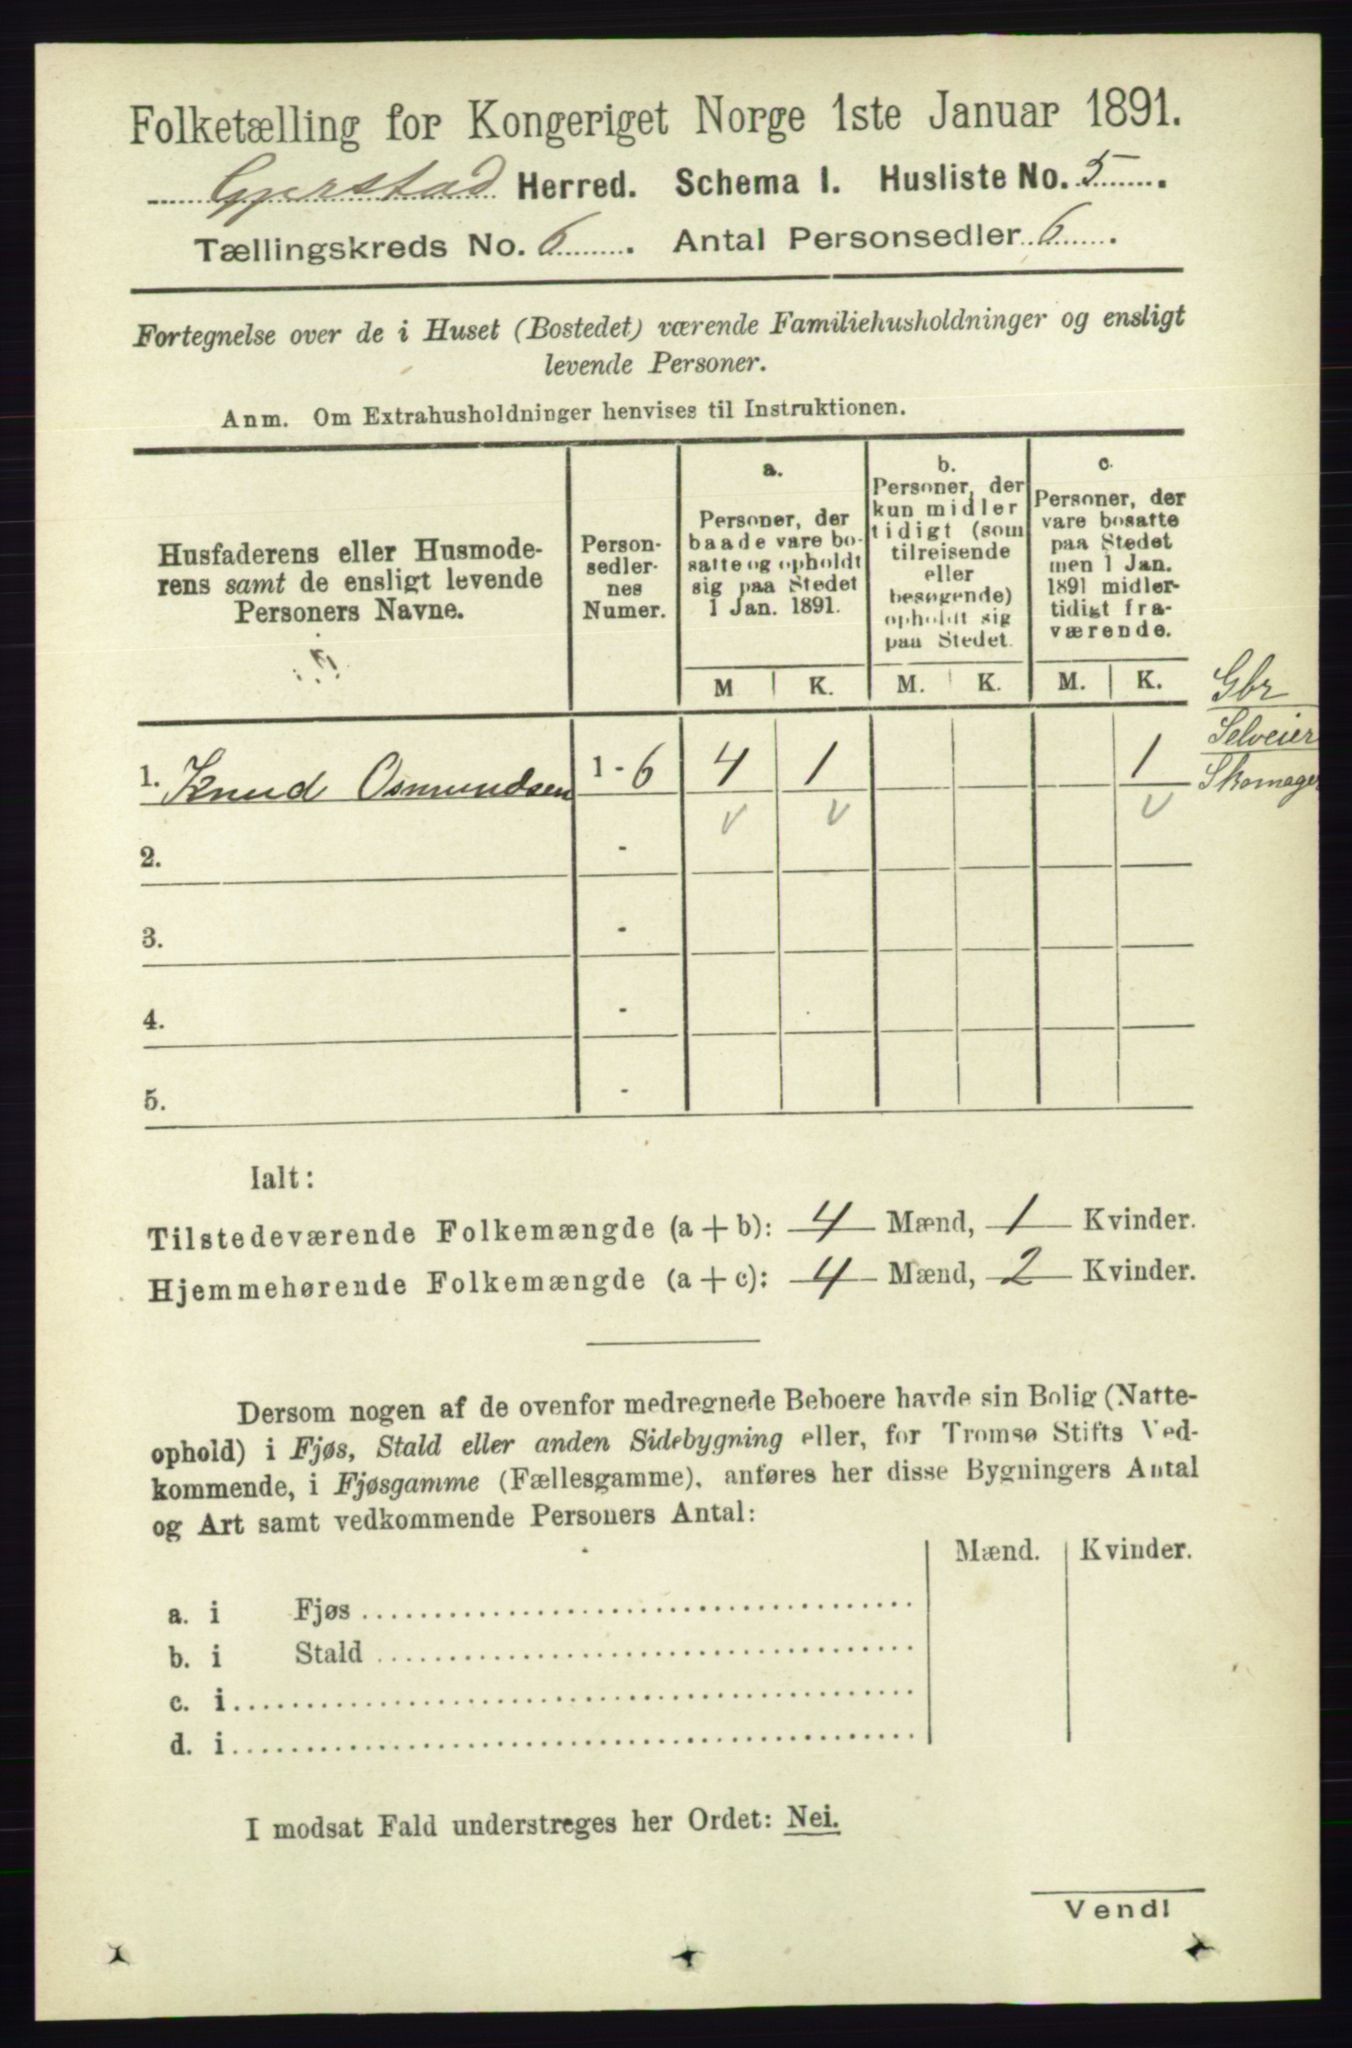 Folketælling for Kongeriget Norge 1ste Januar 1891.
Gjerstad Herred. Schema 1. Husliste No. 5.
Tællingskreds No. 6. Antal Personsedler 6.
Fortegnelse over de i Huset (Bostedet) værende Familiehusholdninger og ensligt
levende Personer.
Anm. Om Extrahusholdninger henvises til Instruktionen.
Husfaderens eller Husmode-
rens samt de ensligt levende
Personers Navne.
Person-
sedler-
nes
Numer.
a.
Personer, der
baade vare bo-
satte og opholdt
sig paa Stedet
1 Jan. 1891.
b.
Personer, der
kun midler
tidigt (som
tilreisende
eller
besøgende)
opholdt sig
paa Stedet.
c.
Personer, der
vare bosatte
paa Stedet
men 1 Jan.
1891 midler-
tidigt fra-
værende.
M K. M. K. M. K.
Gbr
Selveier
Skomager
1. Knud Osmundsen 1-6 4 1 1
v v v
2. -
3. -
4. -
5. -
Ialt:
Tilstedeværende Folkemængde (a + b): 4 Mænd, 1 Kvinder.
Hjemmehørende Folkemængde (a + c): 4 Mænd, 2 Kvinder.
Dersom nogen af de ovenfor medregnede Beboere havde sin Bolig (Natte-
ophold) i Fjøs, Stald eller anden Sidebygning eller, for Tromsø Stifts Ved-
kommende, i Fjøsgamme (Fællesgamme), anføres her disse Bygningers Antal
og Art samt vedkommende Personers Antal:
Mænd. Kvinder.
a. i Fjøs
b. i Stald
c. i
d. i
I modsat Fald understreges her Ordet: Nei.
Vend!